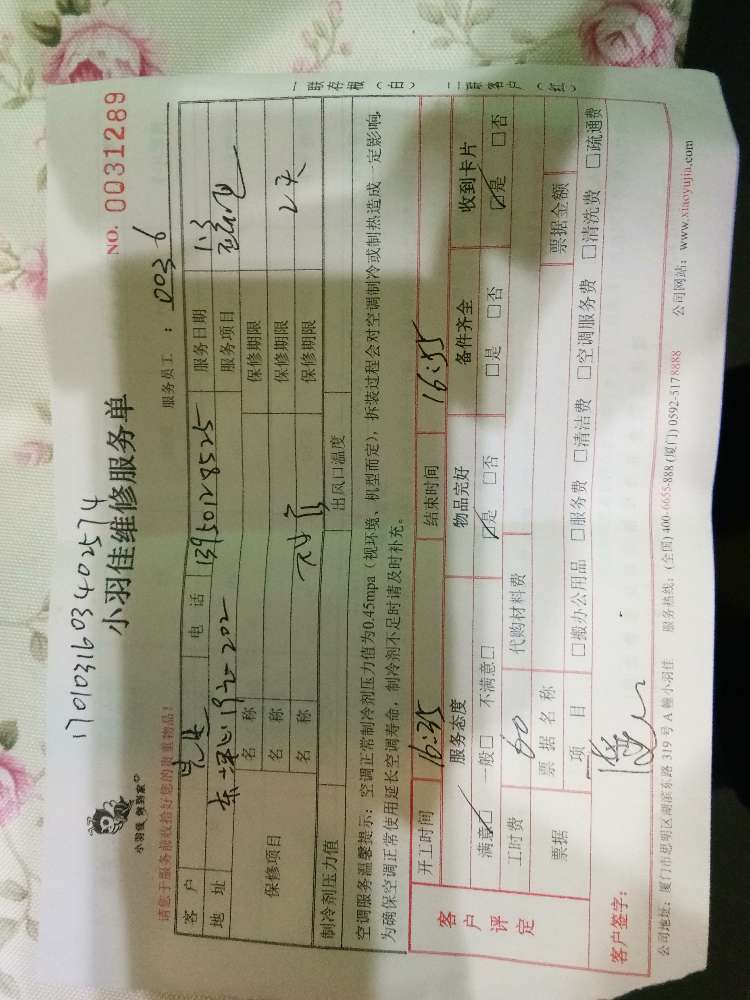 17010316034025 74
小羽佳维修服务单
NO. 0031289
小羽佳 飒到家
请您于服务前收拾好您的贵重物品!
服务员工 : 0036
客 户 电 话 13950128525 服务日期 1.3
地 址 服务项目
保修项目 名 称 保修期限
名 称 保修期限 2天
名 称 保修期限
制冷剂压力值 出风口温度
空调服务温馨提示: 空调正常制冷剂压力值为0.45mpa (视环境、机型而定), 拆装过程会对空调制冷或制热造成一定影响,
为确保空调正常使用延长空调寿命, 制冷剂不足时请及时补充。
一联存根 (白) 二联客户 (红)
客户评定
开工时间 16:35 结束时间 16:55
服务态度 物品完好 备件齐全 收到卡片
满意□ 一般□ 不满意□ □是 □否 □是 □否 □是 □否
工时费 60 代购材料费
票据 票 据 名 称 票据金额
项 目 □搬办公用品 □服务费 □清洁费 □空调服务费 □清洗费 □疏通费
客户签字:
公司地址: 厦门市思明区湖滨东路 319 号 A 幢小羽佳 服务热线: (全国) 400-6655-888 (厦门) 0592-5178888 公司网站: www.xiaoyujia.com